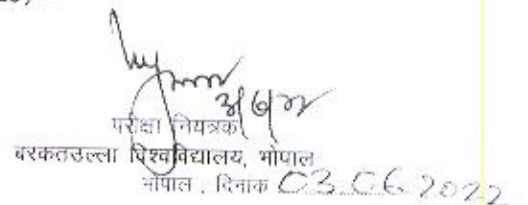 3/6/22
परीक्षा नियंत्रक
बरकतउल्ला विश्वविद्यालय, भोपाल
भोपाल, दिनांक 03.06.2022